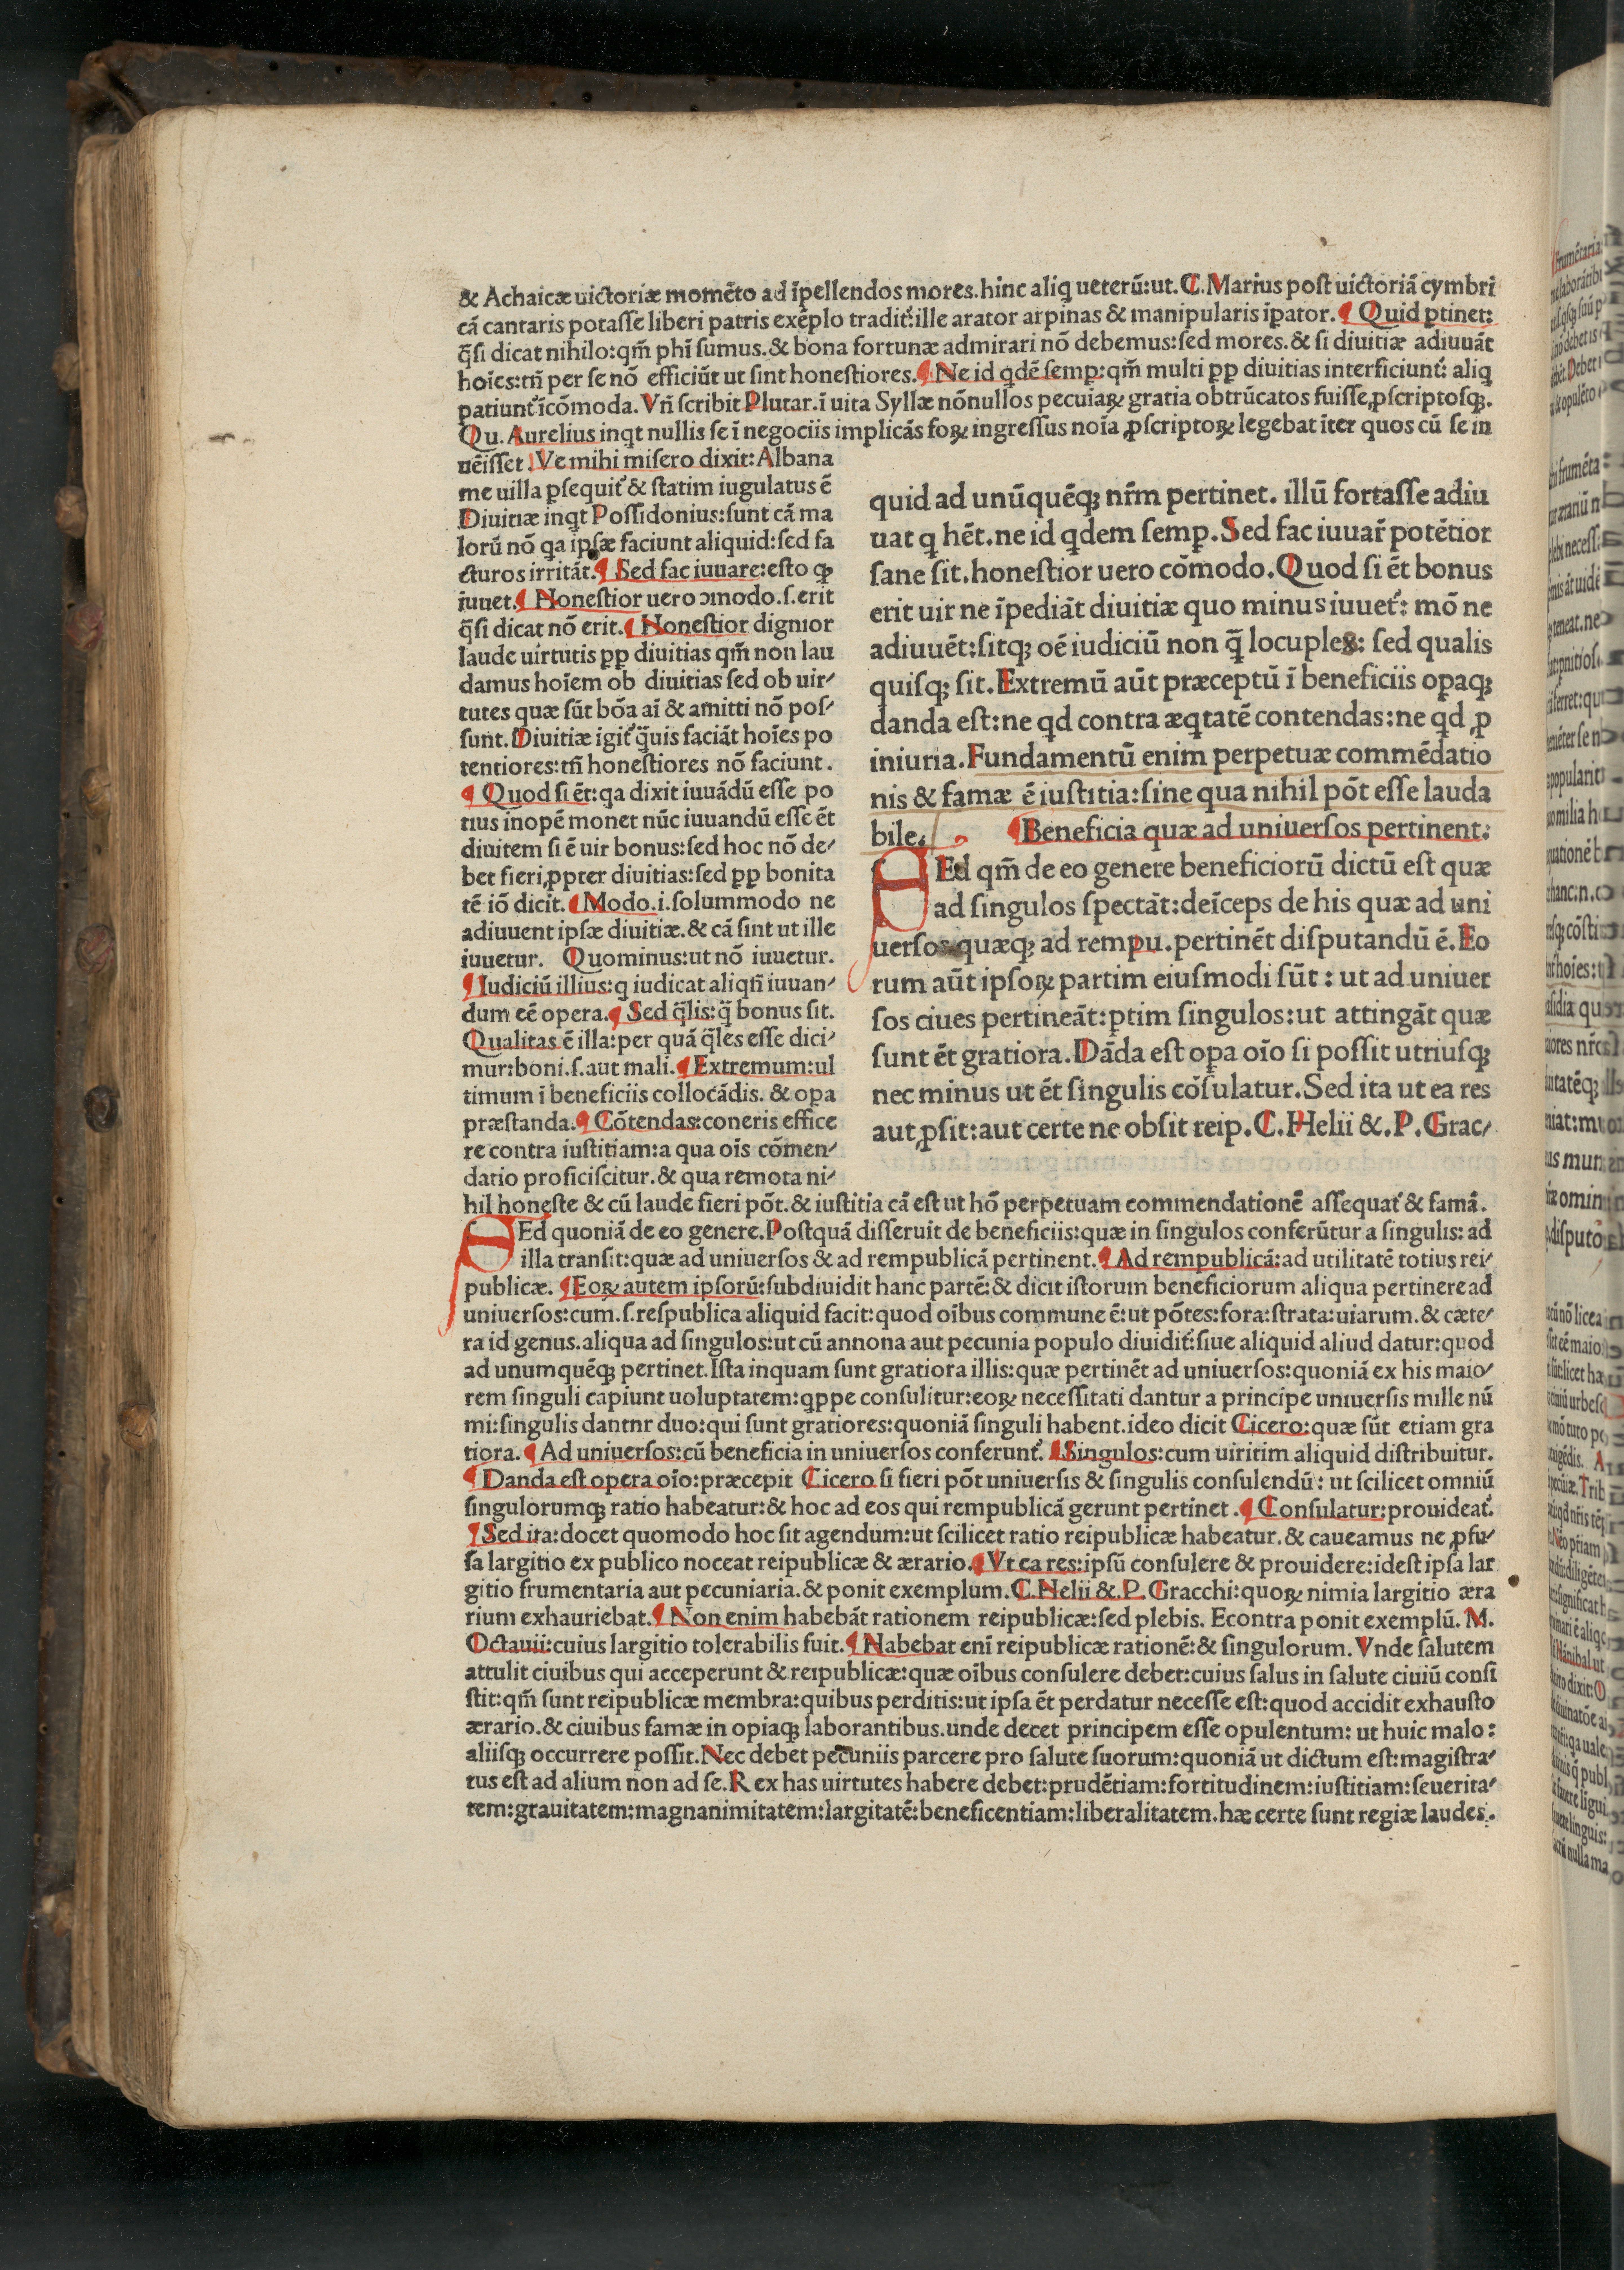 & Achaicæ uictoriæ momēto ad īpellendos mores.hinc aliq ueterū:ut.C.Marius poſt uictoriā cymbri
cā cantaris potaſſe liberi patris exēplo tradit᷑:ille arator arpinas & manipularis īpator.¶ Quid ptinet:
q̄ſi dicat nihilo:qm̄ phī ſumus.& bona fortunæ admirari nō debemus:ſed mores.& ſi diuitiæ adiuuāt
hoīes:tn̄ per ſe nō efficiūt ut ſint honeſtiores.¶ Ne id qdē ſemp:qm̄ multi pp diuitias interficiunt᷑: aliq
patiunt᷑ īcōmoda.Vn̄ ſcribit Plutar.ī uita Syllæ nōnullos pecuiaꝝ gratia obtrūcatos fuiſſe,ꝓſcriptoſqꝫ.
Qu.Aurelius inqt nullis ſe ī negociis implicās foꝝ ingreſſus noīa ꝓſcriptoꝝ legebat īter quos cū ſe in
uēiſſet.Ve mihi miſero dixit:Albana
me uilla ꝑſequit᷑ & ſtatim iugulatus ē
Diuitiæ inqt Poſſidonius:ſunt cā ma
lorū nō qa ipſæ faciunt aliquid:ſed fa
cturos irritāt.¶ Sed fac iuuare:eſto qꝫ
iuuet.¶ Honeſtior uero ɔmodo.ſ.erit
q̄ſi dicat nō erit.¶ Honeſtior dignior
laude uirtutis pp diuitias qm̄ non lau
damus hoīem ob diuitias ſed ob uir⸗
tutes quæ ſūt bōa aī & amitti nō poſ⸗
ſunt.Diuitiæ igit᷑ q̄uis faciāt hoīes po
tentiores:tn̄ honeſtiores nō faciunt.
¶ Quod ſi ēt:qa dixit iuuādū eſſe po
tius inopē monet nūc iuuandū eſſe ēt
diuitem ſi ē uir bonus:ſed hoc nō de⸗
bet fieri,ꝓpter diuitias:ſed pp bonita
tē iō dicit.¶ Modo.i.ſolummodo ne
adiuuent ipſæ diuitiæ.& cā ſint ut ille
iuuetur. Quominus:ut nō iuuetur.
¶ Iudiciū illius:q iudicat aliqn̄ iuuan⸗
dum eē opera.¶ Sed q̄lis:q̄ bonus ſit.
Qualitas ē illa:per quā q̄les eſſe dici⸗
mur:boni.ſ.aut mali.¶ Extremum:ul
timum ī beneficiis collocādis. & opa
præſtanda.¶ Cōtendas:coneris effice
re contra iuſtitiam:a qua ois cōmen⸗
datio proficiſcitur.& qua remota ni⸗
quid ad unūquēqꝫ nr̄m pertinet. illū fortaſſe adiu
uat q hēt.ne id qdem ſemp.Sed fac iuuar̄ potētior
ſane ſit.honeſtior uero cōmodo.Quod ſi ēt bonus
erit uir ne īpediāt diuitiæ quo minus iuuet᷑: mō ne
adiuuēt:ſitqꝫ oē iudiciū non q̄ locuples: ſed qualis
quiſqꝫ ſit.Extremū aūt præceptū ī beneficiis opaqꝫ
danda eſt:ne qd contra æqtatē contendas:ne qd ꝓ
iniuria.Fundamentū enim perpetuæ commēdatio
nis & famæ ē iuſtitia:ſine qua nihil pōt eſſe lauda
bile. ¶Beneficia quæ ad uniuerſos pertinent.
SEd qm̄ de eo genere beneficiorū dictū eſt quæ
ad ſingulos ſpectāt:deīceps de his quæ ad uni
uerſos quæqꝫ ad rempu.pertinēt diſputandū ē.Eo
rum aūt ipſoꝝ partim eiuſmodi ſūt : ut ad uniuer
ſos ciues pertineāt:ptim ſingulos:ut attingāt quæ
ſunt ēt gratiora.Dāda eſt opa oīo ſi poſſit utriuſqꝫ
nec minus ut ēt ſingulis cōſulatur.Sed ita ut ea res
aut,ꝓſit:aut certe ne obſit reip.C.Helii &.P.Grac⸗
hil honeſte & cū laude fieri pōt.& iuſtitia cā eſt ut hō perpetuam commendationē aſſequat᷑ & famā.
SEd quoniā de eo genere.Poſtquā diſſeruit de beneficiis:quæ in ſingulos conferūtur a ſingulis: ad
illa tranſit:quæ ad uniuerſos & ad rempublicā pertinent.¶ Ad rempublicā:ad utilitatē totius rei⸗
publicæ. ¶Eoꝝ autem ipſorū:ſubdiuidit hanc partē:& dicit iſtorum beneficiorum aliqua pertinere ad
uniuerſos:cum.ſ.reſpublica aliquid facit:quod oībus commune ē:ut pōtes:fora:ſtrata:uiarum.& cæte⸗
ra id genus.aliqua ad ſingulos:ut cū annona aut pecunia populo diuidit᷑:ſiue aliquid aliud datur:quod
ad unumquēqꝫ pertinet.Iſta inquam ſunt gratiora illis:quæ pertinēt ad uniuerſos:quoniā ex his maio⸗
rem ſinguli capiunt uoluptatem:qppe conſulitur:eoꝝ neceſſitati dantur a principe uniuerſis mille nū
mi:ſingulis dantnr duo:qui ſunt gratiores:quoniā ſinguli habent.ideo dicit Cicero:quæ ſūt etiam gra
tiora.¶ Ad uniuerſos:cū beneficia in uniuerſos conferunt᷑.¶Singulos:cum uiritim aliquid diſtribuitur.
¶ Danda eſt opera oīo:præcepit Cicero ſi fieri pōt uniuerſis & ſingulis conſulendū: ut ſcilicet omniū
ſingulorumqꝫ ratio habeatur:& hoc ad eos qui rempublicā gerunt pertinet .¶ Conſulatur:prouideat᷑.
¶ Sed ita:docet quomodo hoc ſit agendum:ut ſcilicet ratio reipublicæ habeatur.& caueamus ne ꝓfu⸗
ſa largitio ex publico noceat reipublicæ & ærario.¶ Vt ea res:ipſū conſulere & prouidere:ideſt ipſa lar
gitio frumentaria aut pecuniaria.& ponit exemplum.C.Helii &.P.Gracchi:quoꝝ nimia largitio æra
rium exhauriebat.¶ Non enim habebāt rationem reipublicæ:ſed plebis. Econtra ponit exemplū. M.
Octauii:cuius largitio tolerabilis fuit.¶ Habebat enī reipublicæ rationē:& ſingulorum.Vnde ſalutem
attulit ciuibus qui acceperunt & reipublicæ:quæ oībus conſulere debet:cuius ſalus in ſalute ciuiū conſi
ſtit:qm̄ ſunt reipublicæ membra:quibus perditis:ut ipſa ēt perdatur neceſſe eſt:quod accidit exhauſto
ærario.& ciuibus famæ in opiaqꝫ laborantibus.unde decet principem eſſe opulentum: ut huic malo:
aliiſqꝫ occurrere poſſit.Nec debet pecuniis parcere pro ſalute ſuorum:quoniā ut dictum eſt:magiſtra⸗
tus eſt ad alium non ad ſe.Rex has uirtutes habere debet:prudētiam:fortitudinem:iuſtitiam:ſeuerita⸗
tem:grauitatem:magnanimitatem:largitatē:beneficentiam:liberalitatem.hæ certe ſunt regiæ laudes.